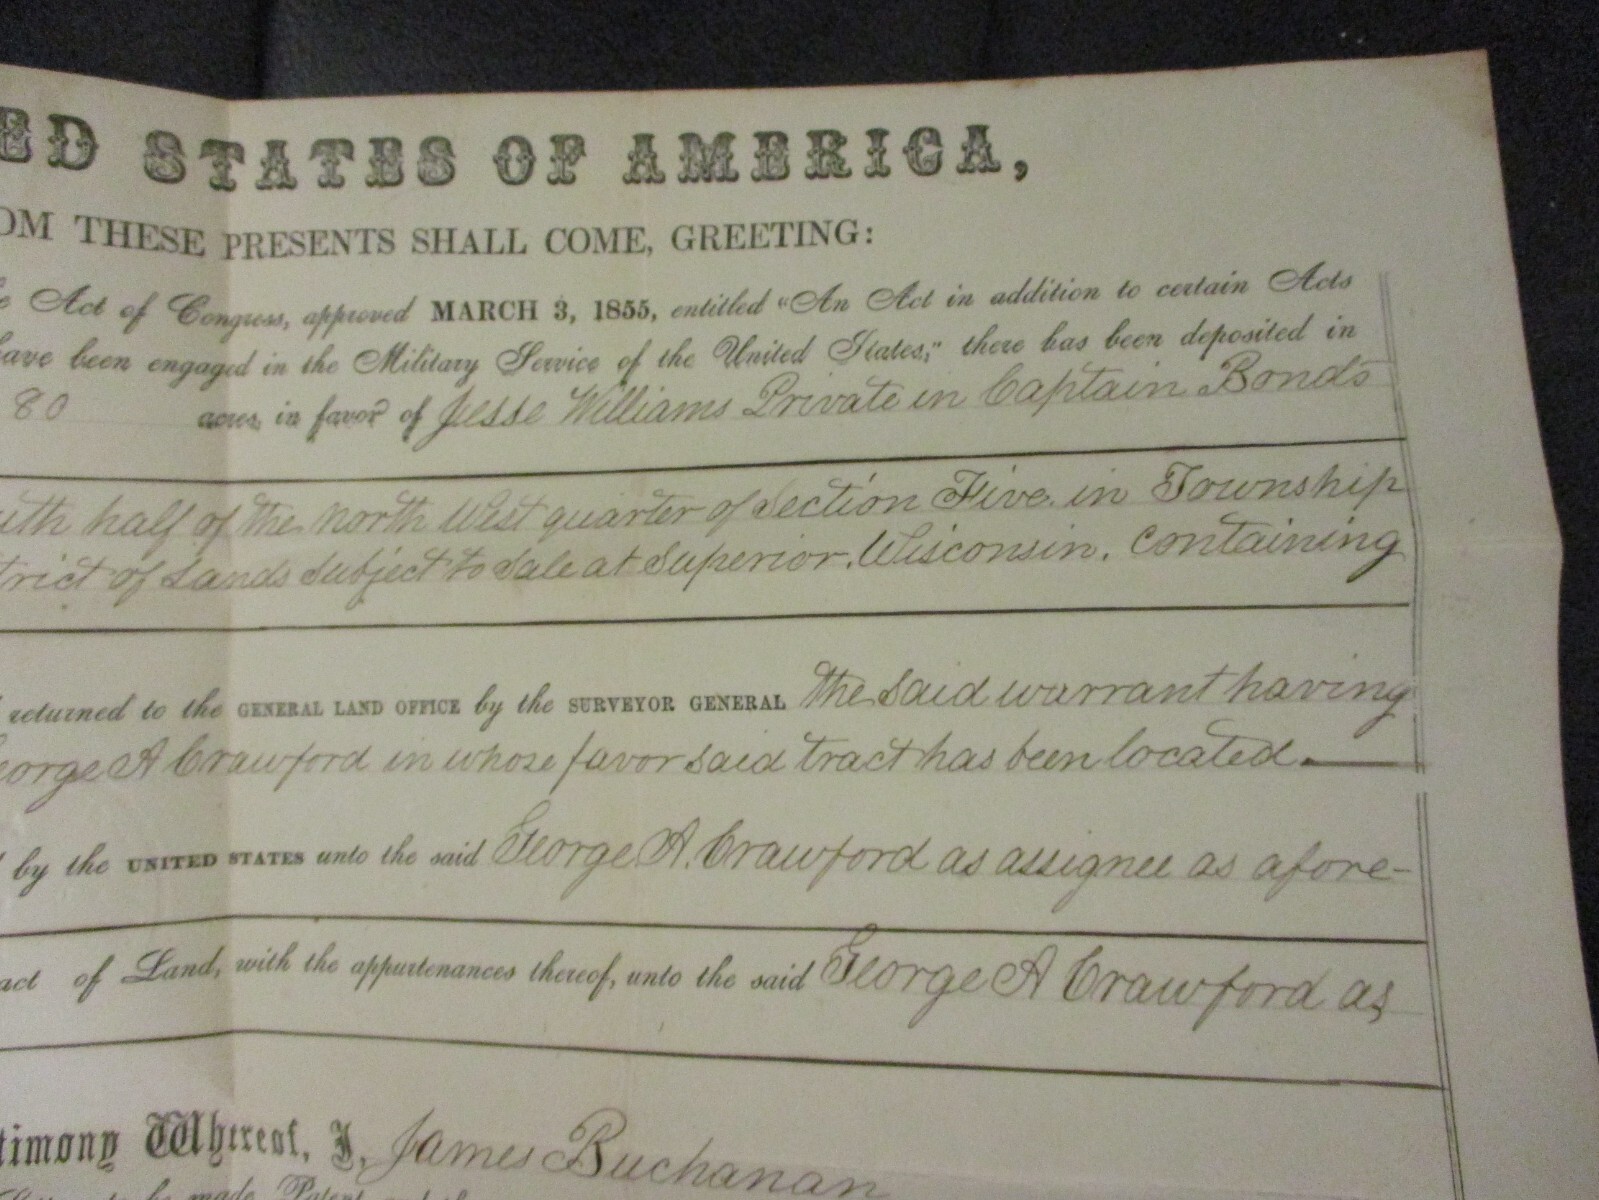 ED STATES OF AMERICA,
OM THESE PRESENTS SHALL COME, GREETING:
e Act of Congress, approved MARCH 3, 1855, entitled "An Act in addition to certain Acts
have been engaged in the Military Service of the United States," there has been deposited in
80 acres, in favor of Jesse Williams Private in Captain Bonds
uth half of the north West quarter of Section Five in Township
trict of Lands Subject to Sale at Superior. Wisconsin. Containing
returned to the GENERAL LAND OFFICE by the SURVEYOR GENERAL the said warrant having
eorge A Crawford in whose favor said tract has been located.
by the UNITED STATES unto the said George A. Crawford as assignee as afore-
act of Land, with the appurtenances thereof, unto the said George A Crawford as
timony Whereof, I, James Buchanan
to be made Patent,